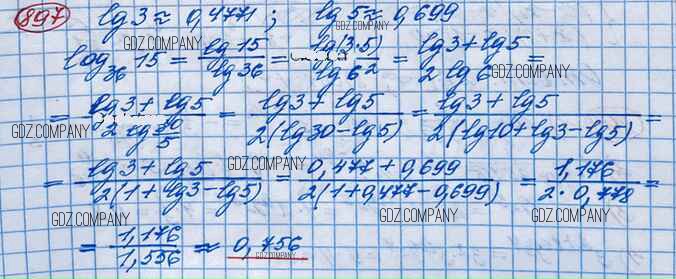 897 lg 3 ≈ 0,4771 ; lg 5 ≈ 0,699
GDZ.COMPANY GDZ.COMPANY
log₃₆ 15 = lg 15 / lg 36 = lg(3·5) / lg 6² = (lg 3 + lg 5) / (2 lg 6) =
GDZ.COMPANY GDZ.COMPANY
= (lg 3 + lg 5) / (2 lg 30/5) = (lg 3 + lg 5) / (2(lg 30 − lg 5)) = (lg 3 + lg 5) / (2(lg 10 + lg 3 − lg 5)) =
GDZ.COMPANY GDZ.COMPANY GDZ.COMPANY
= (lg 3 + lg 5) / (2(1 + lg 3 − lg 5)) = (0,477 + 0,699) / (2(1 + 0,477 − 0,699)) = 1,176 / (2 · 0,778) =
GDZ.COMPANY GDZ.COMPANY GDZ.COMPANY GDZ.COMPANY
= 1,176 / 1,556 ≈ 0,756
GDZ.COMPANY